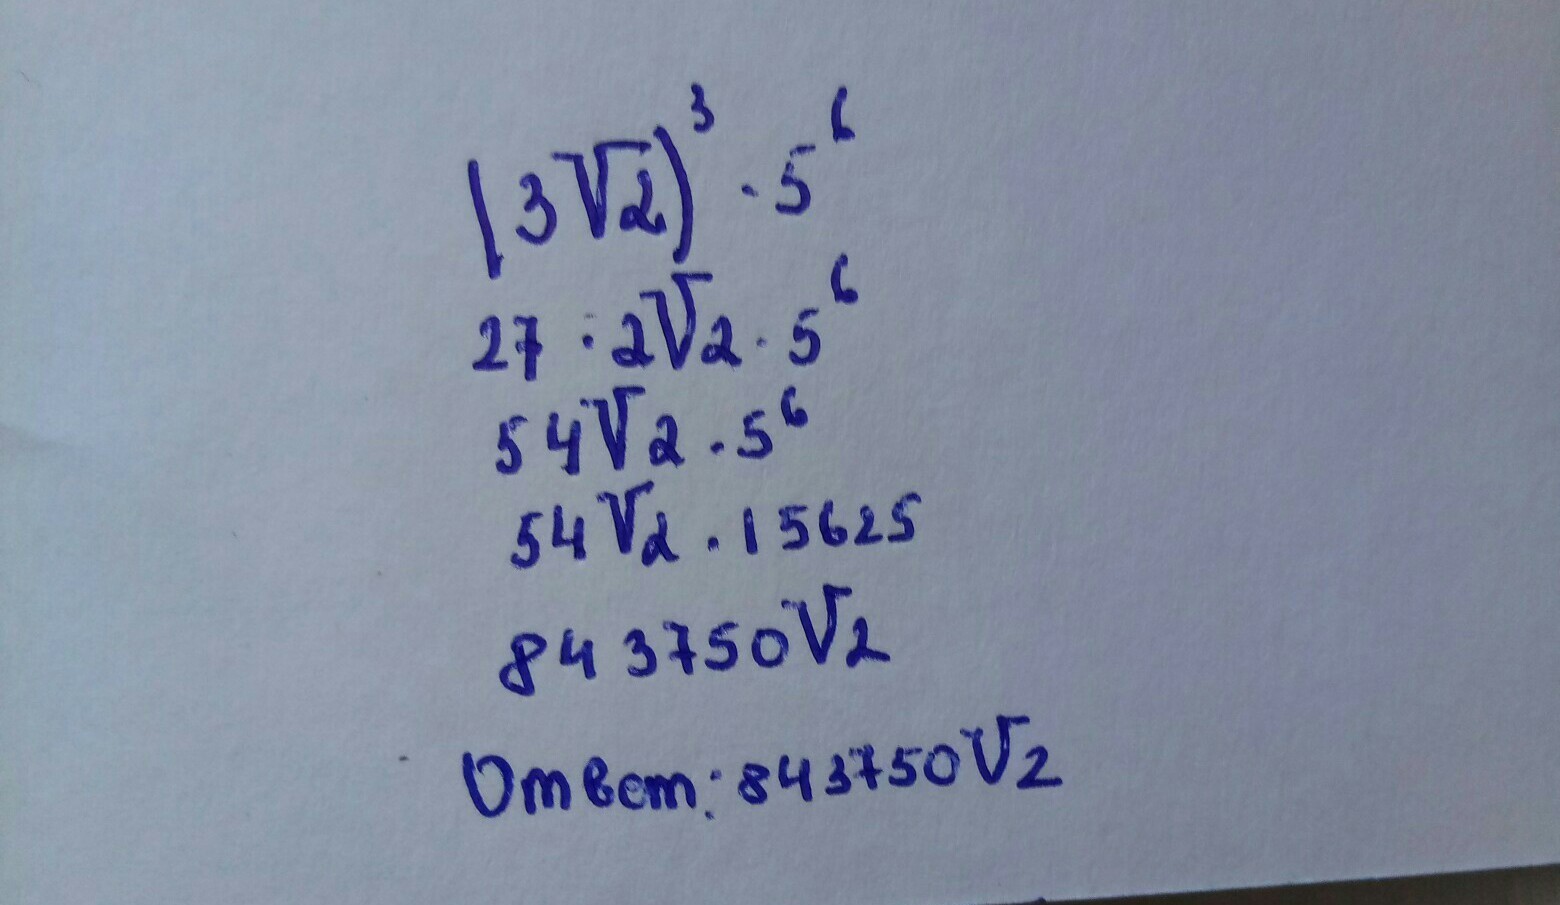 (3√2)³ · 5⁶
27 · 2√2 · 5⁶
54√2 · 5⁶
54√2 · 15625
843750√2
Ответ: 843750√2